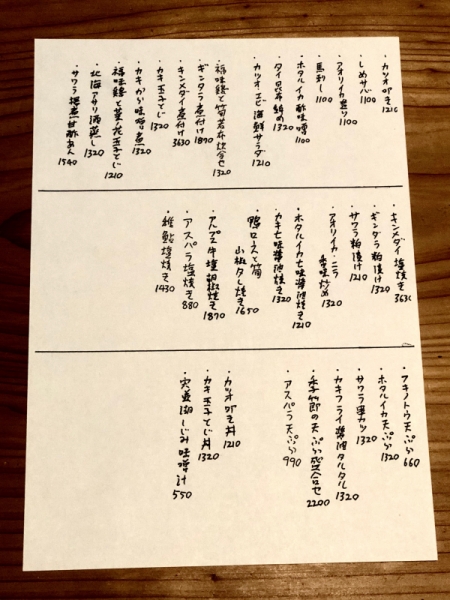 ・カツオ叩き 1210
・しめサバ 1100
・アオリイカ造り 1100
・馬刺し 1100
・ホタルイカ酢味噌 1100
・タイ昆布締め 1320
・カツオ、エビ海鮮サラダ 1210
・筍若布炊合せ 1320
・ギンダラ煮付け 1870
・キンメダイ煮付け 3630
・カキ玉子とじ 1320
・カキから味噌煮 1320
・菜ノ花玉子とじ 1210
・北海アサリ酒蒸し 1320
・サワラ揚煮甘酢あん 1540
・キンメダイ塩焼き 3630
・ギンダラ粕漬け 1320
・サワラ粕漬け 1210
・アオリイカ・ニラ香味炒め 1320
・ホタルイカ七味醤油焼き 1210
・カキ七味醤油焼き 1320
・鴨ロースと筍山椒タレ焼き 1650
・アルプス牛塩胡椒焼き 1870
・アスパラ塩焼き 880
・稚鮎塩焼き 1430
・フキノトウ天ぷら 660
・ホタルイカ天ぷら 1320
・サワラ串カツ 1320
・カキフライ醤油タルタル 1320
・季節の天ぷら盛合せ 2200
・アスパラ天ぷら 990
・カツオ叩き丼 1210
・カキ玉子とじ丼 1320
・宍道湖しじみ味噌汁 550